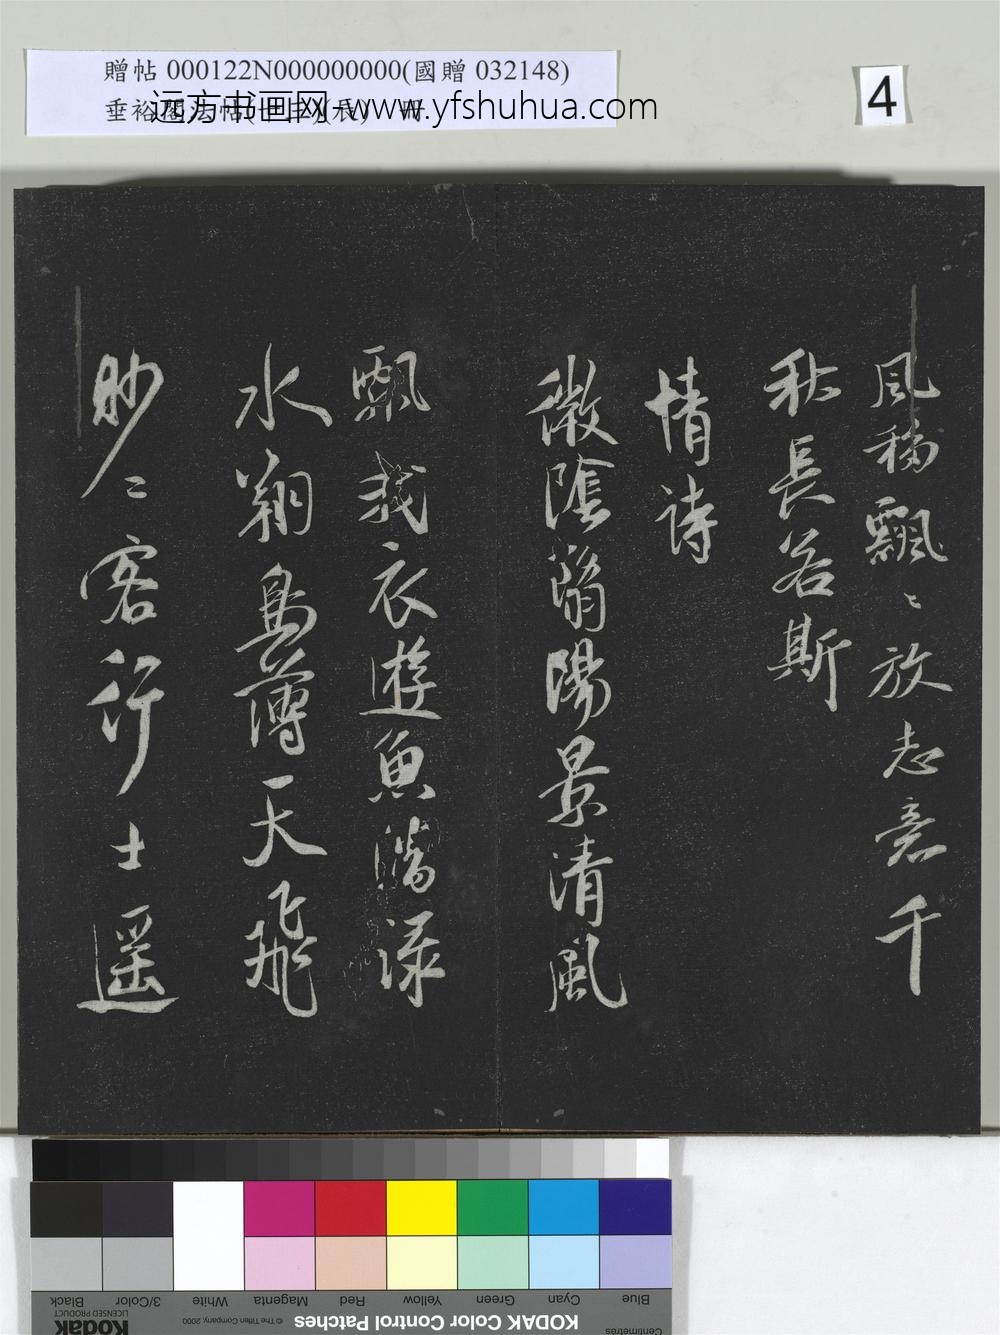 贈帖 000122N000000000(國贈 032148)
远方书画网-www.yfshuhua.com
4
風稱飄〻放志意千
秋長若斯
情詩
微陰翳陽景清風
飄我衣遊魚潛淥
水翔鳥薄天飛
眇〻客行士遥
Blue Cyan Green Yellow Red Magenta White 3/Color Black
Centimetres KODAK Color Control Patches © The Tiffen Company, 2000 Kodak
LICENSED PRODUCT